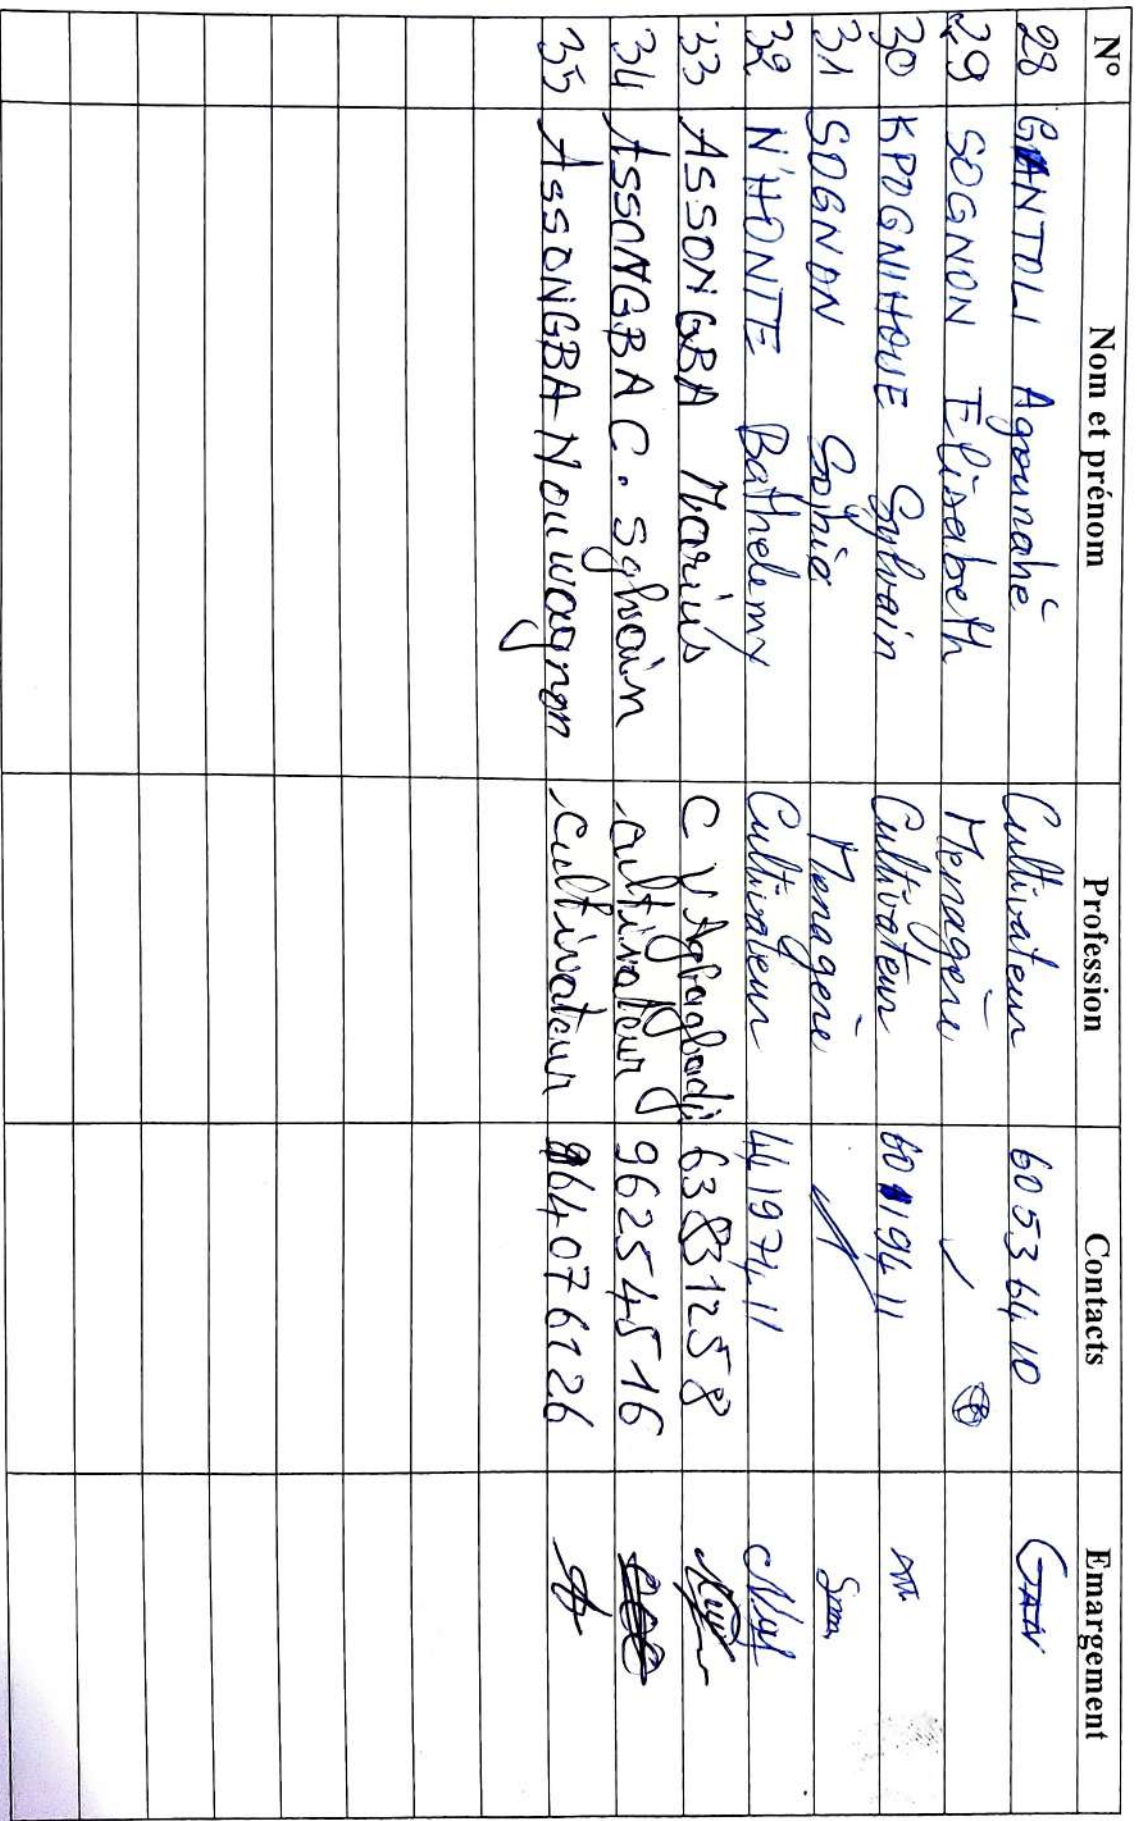 N° Nom et prénom Profession Contacts Emargement
28 GANTOLI Agounahé Cultivateur 60 53 64 10 GAN
29 SOGNON Elisabeth Menagère
30 KPOGNIHOUE Sylvain Cultivateur 60 194 11
31 SOGNON Sophie Menagère
32 N'HONTE Bathelemy Cultivateur 44 1974 11
33 ASSONGBA Marius C V Agbagbadji 63831258
34 ASSONGBA C. Sylvain cultivateur 96254516
35 ASSONGBA Nouwagnon cultivateur 64076126